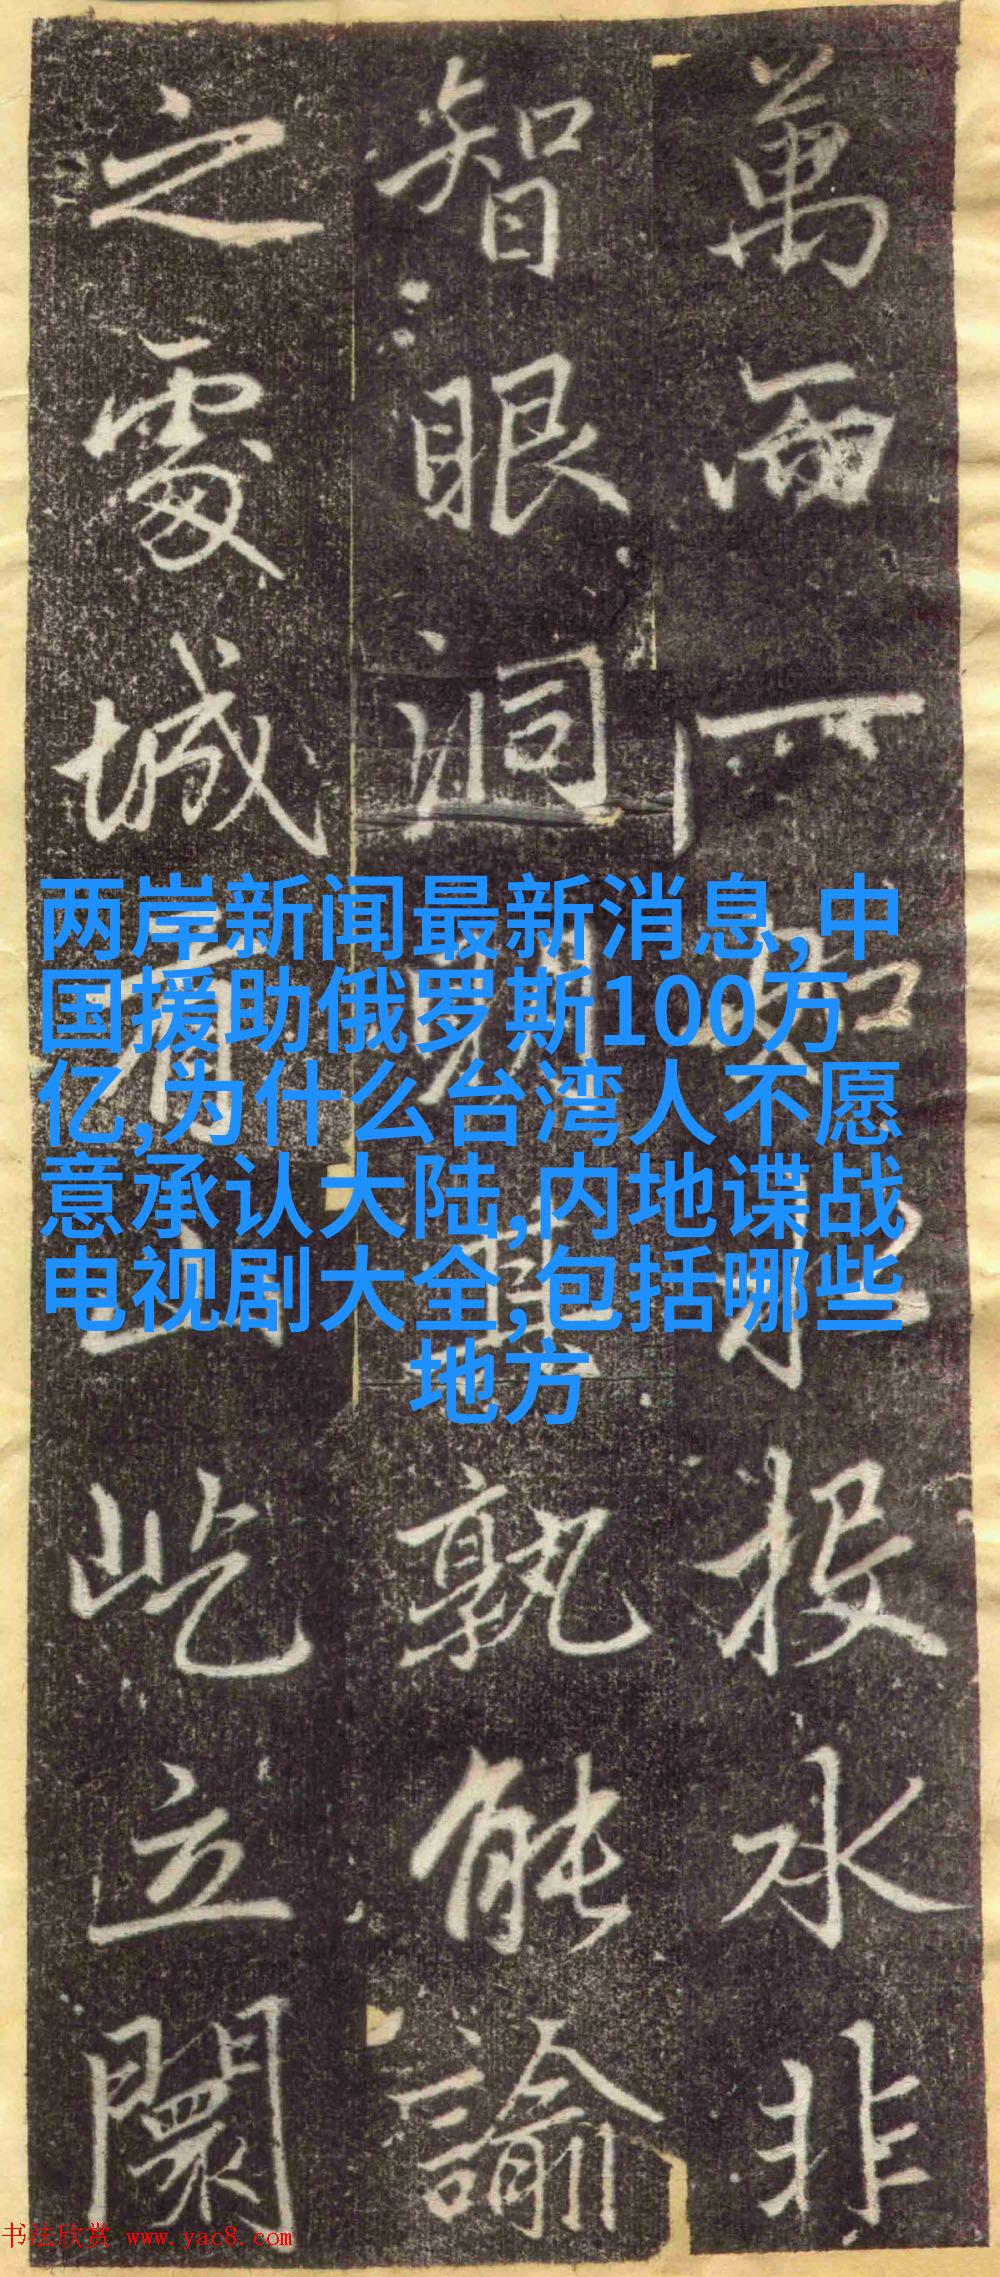 萬而一如水投水非
智眼洞明其孰能諭
之處城有山屹立闤
两岸新闻最新消息,中
国援助俄罗斯100万
亿,为什么台湾人不愿
意承认大陆,内地谍战
电视剧大全,包括哪些
地方
书法欣赏 www.yac8.com